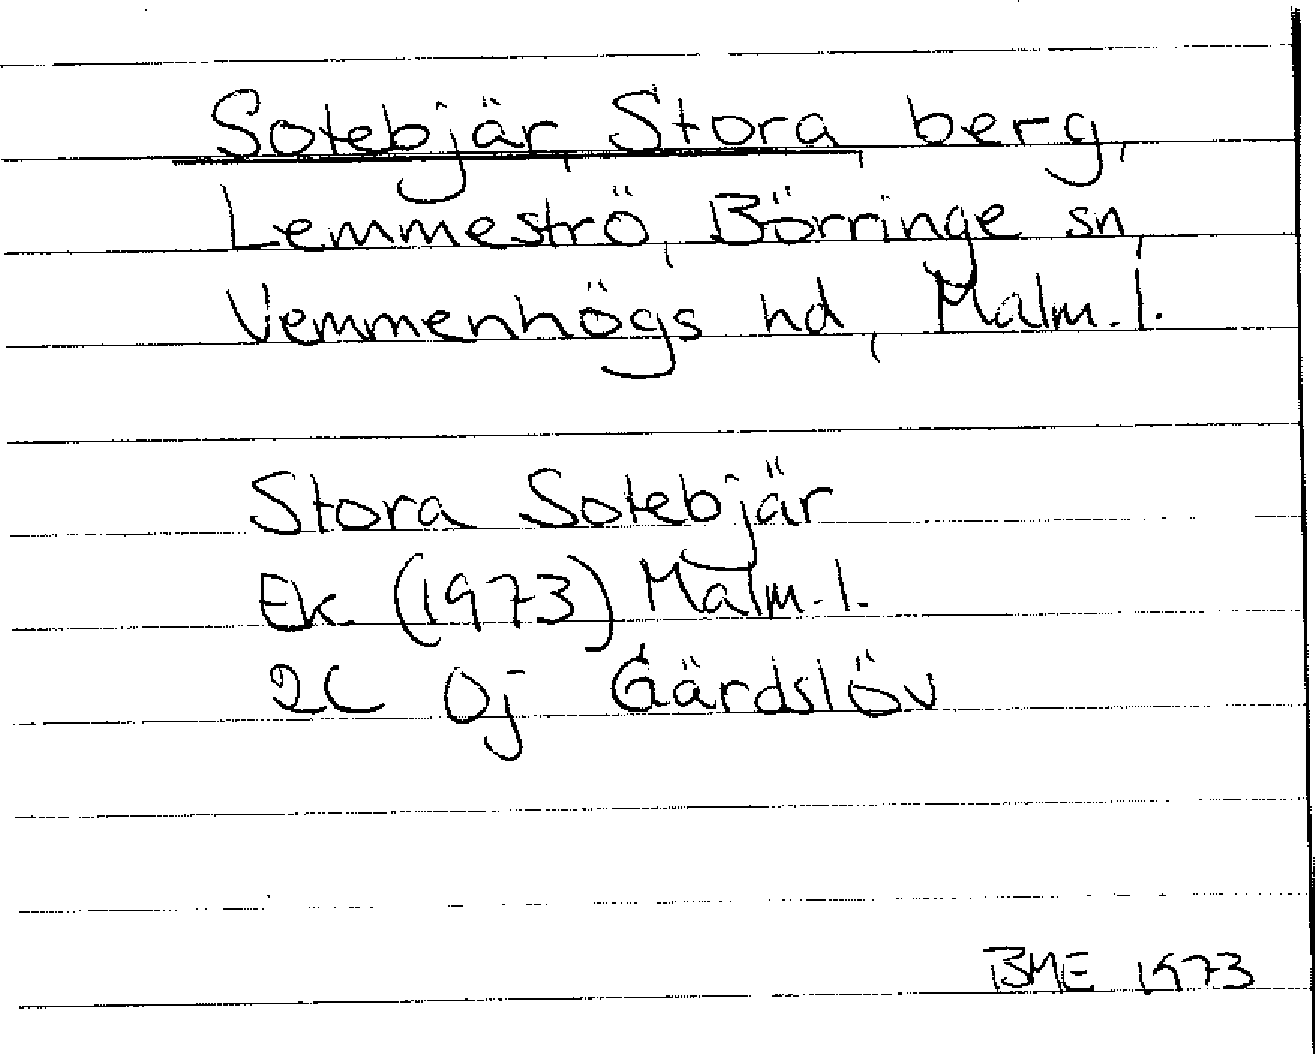 Sotebjär, Stora, berg,
Lemmeströ, Börringe sn,
Vemmenhögs hd, Malm.l.
Stora Sotebjär
Ek (1973) Malm.l.
2C 0j Gärdslöv
BME 1973